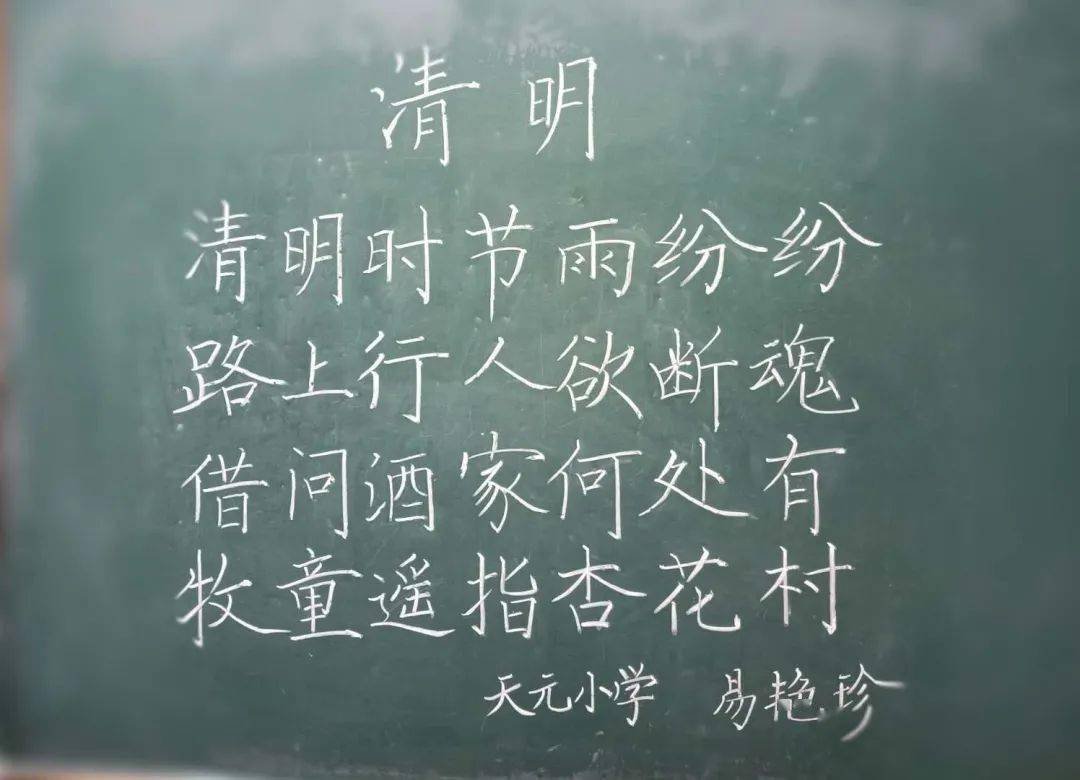 清明
清明时节雨纷纷
路上行人欲断魂
借问酒家何处有
牧童遥指杏花村
天元小学 易艳珍